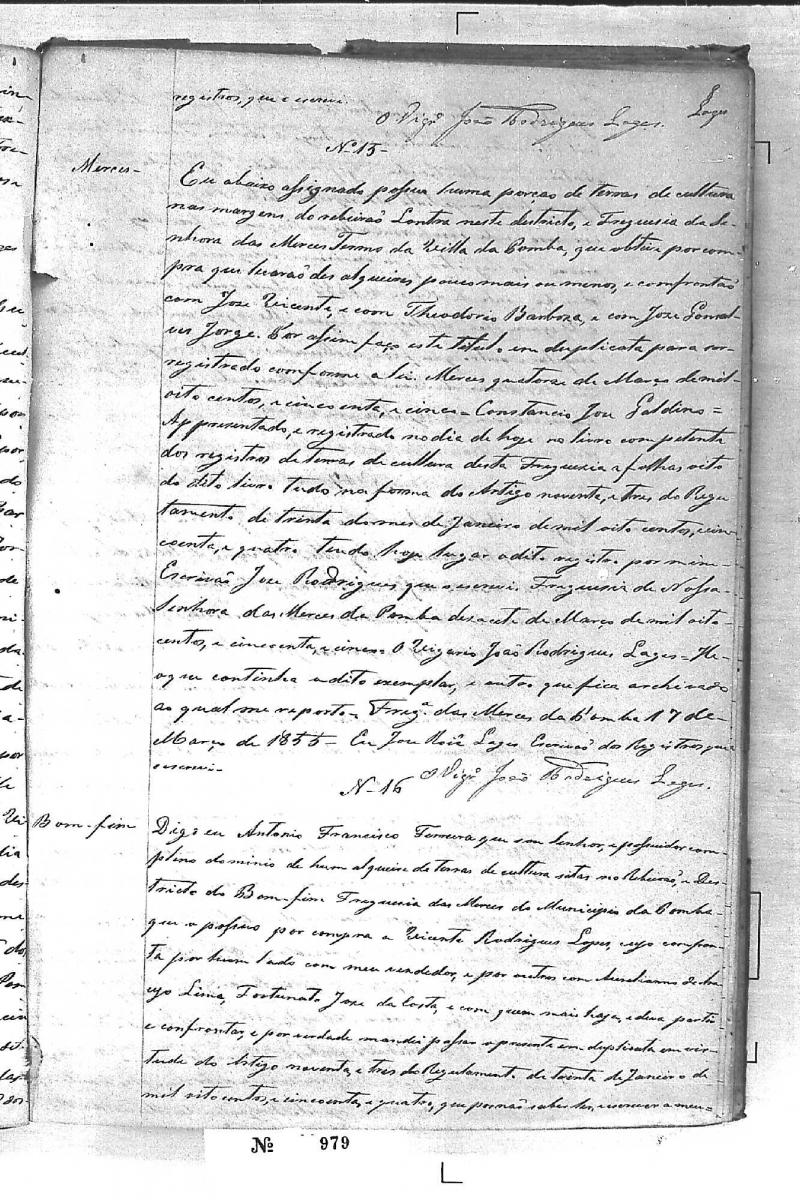 registros, que e escrevi.
O Vigrº João Rodrigues Lages. Lages
Nº 15-
Merces-
Eu abaixo assignado possuo huma porção de terras de cultura
nas margens do ribeirão Lontra neste districto, e Freguesia da Se-
nhora das Merces Termo da Villa da Pomba, que obtive por com-
pra que levarão des alqueires pouco mais ou menos, e confrontão
com Joze Vicente, e com Theodorio Barboza, e com Joze Gonsal-
ves Jorge. Por assim faço este titulo em duplicata para ser
registrado comforme a lei. Merces quatorze de Março de mil-
oito centos, e cincoenta, e cinco = Constancio Joze Galdino =
Appresentado, e registrado no dia de hoje no livro competente
dos registros de terras de cultura desta Freguesia a folhas oito
do dito livro tudo na forma do Artigo noventa, e tres do Regu
lamento de trinta do mes de Janeiro de mil oito centos, e cin-
coenta, e quatro tendo hoje lugar o dito registro por mim
Escrivão Joze Rodrigues que o escrevi. Freguesia de Nossa-
Senhora das Merces da Pomba desacete de Março de mil oito-
centos, e cincoenta, e cinco O Vigario João Rodrigues Lages = He
o que continha o dito exemplar, e outro que fica archivado
ao qual me reporto. Fregª. das Merces da Pomba 17 de-
Março de 1855- Eu Joze Roiz Lages Escrivão dos Registros que
o escrevi-
O Vigrº João Rodrigues Lages.
N- 16
Bom-fim
Digo eu Antonio Francisco Ferreira que sou senhor, e possuidor com-
pleno dominio de hum alqueire de terras de cultura sitas no Ribeirão, e Dis-
tricto do Bom-fim Freguesia das Merces do Municipio da Pomba-
que o possuo por compra a Vicente Rodrigues Lopes, cujo comfron-
ta por hum lado com meu vendedor, e por outros com Aurelianno de Ara-
ujo Lima, Fortunato Joze da Costa, e com quem mais haja, e deva partir
e confrontar, e por verdade mandei passar o presente em duplicata em vir-
tude do Artigo noventa, e tres do Regulamento de trinta de Janeiro de
mil oito centos, e cincoenta, e quatro, que por não saber ler, e escrever a meu=
Nº 979